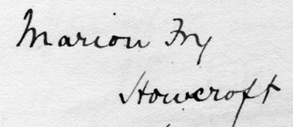 Marion Fry
Howcroft